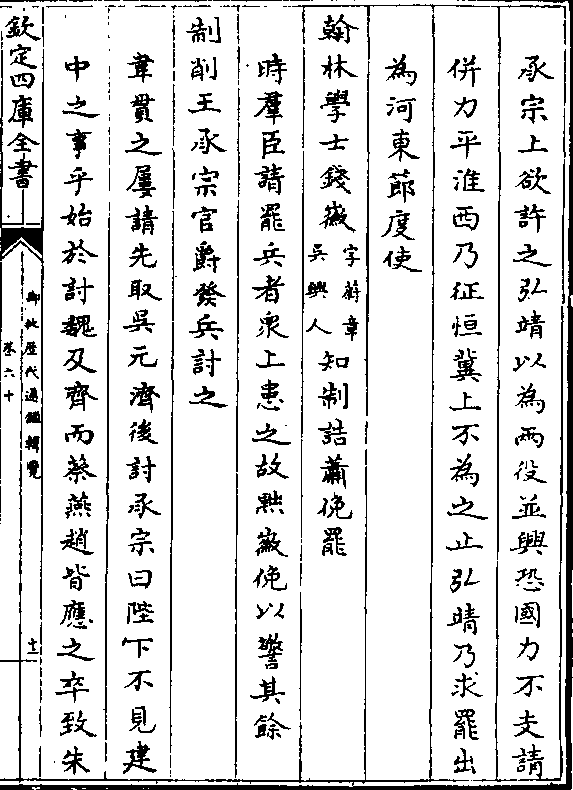 承宗上欲許之弘靖以為兩役並興恐國力不支請
併力平淮西乃征恒冀上不為之止弘靖乃求罷出
為河東節度使
翰林學士錢徽字蔚章吳興人知制誥蕭俛罷
時羣臣請罷兵者衆上患之故黜徽俛以警其餘
制削王承宗官爵發兵討之
韋貫之屢請先取吳元濟後討承宗曰陛下不見建
中之事乎始於討魏及齊而蔡燕趙皆應之卒致朱
欽定四庫全書
御批歷代通鑑輯覽
卷六十
十二